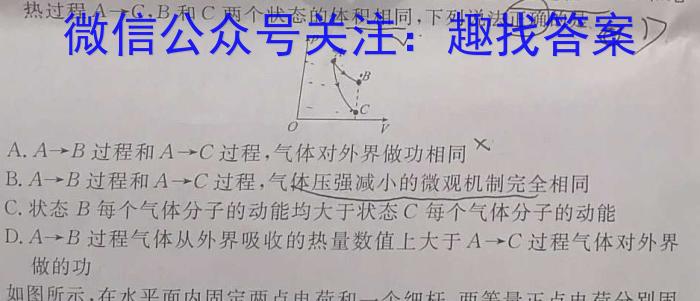 热过程 A→C,B 和 C 两个状态的体积相同,下列说法正确的是
微信公众号关注：趣找答案
A
B
C
O
V
A. A→B 过程和 A→C 过程,气体对外界做功相同 ×
B. A→B 过程和 A→C 过程,气体压强减小的微观机制完全相同
C. 状态 B 每个气体分子的动能均大于状态 C 每个气体分子的动能
D. A→B 过程气体从外界吸收的热量数值上大于 A→C 过程气体对外界
做的功
如图所示,在水平面内固定两点电荷和一个细杆,两等量正点电荷分别固